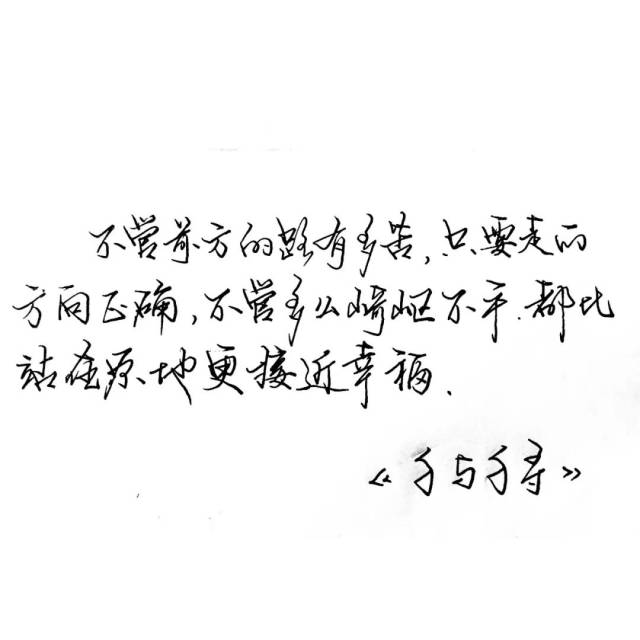 不管前方的路有多苦,只要走的
方向正确,不管多么崎岖不平.都比
站在原地更接近幸福.
《千与千寻》